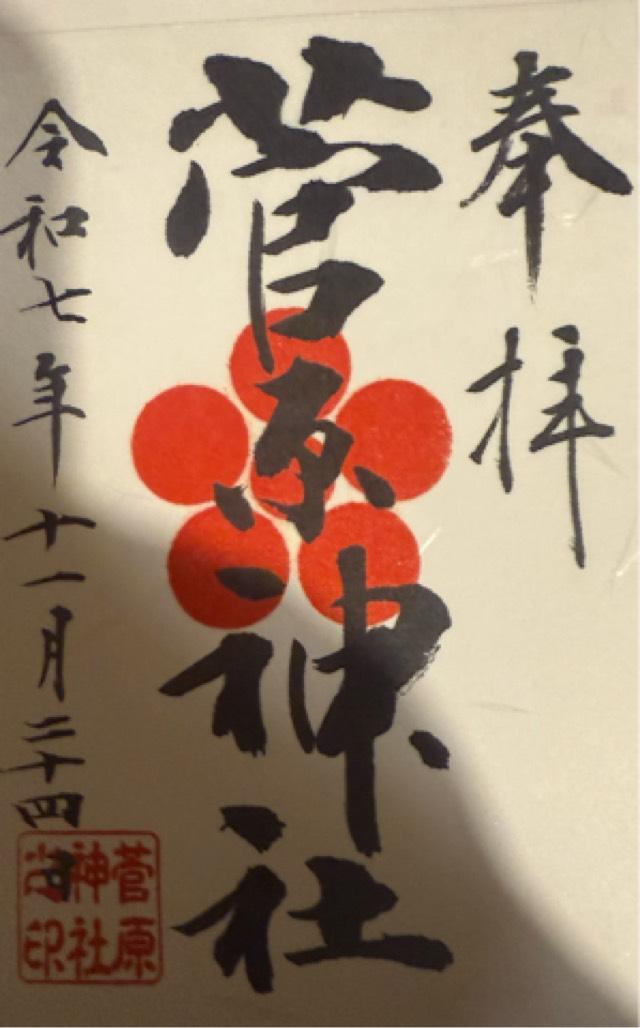 奉拝
菅原神社
令和七年十一月二十四日
菅原
神社
之印